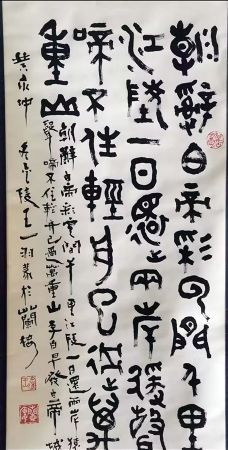 朝辭白帝彩云間千里
江陵一日還兩岸猿聲
啼不住輕舟已過萬
重山
朝辭白帝彩雲間千里江陵一日還兩岸猿
聲啼不住輕舟已過萬重山李白早發白帝城
王一羽篆於蘭